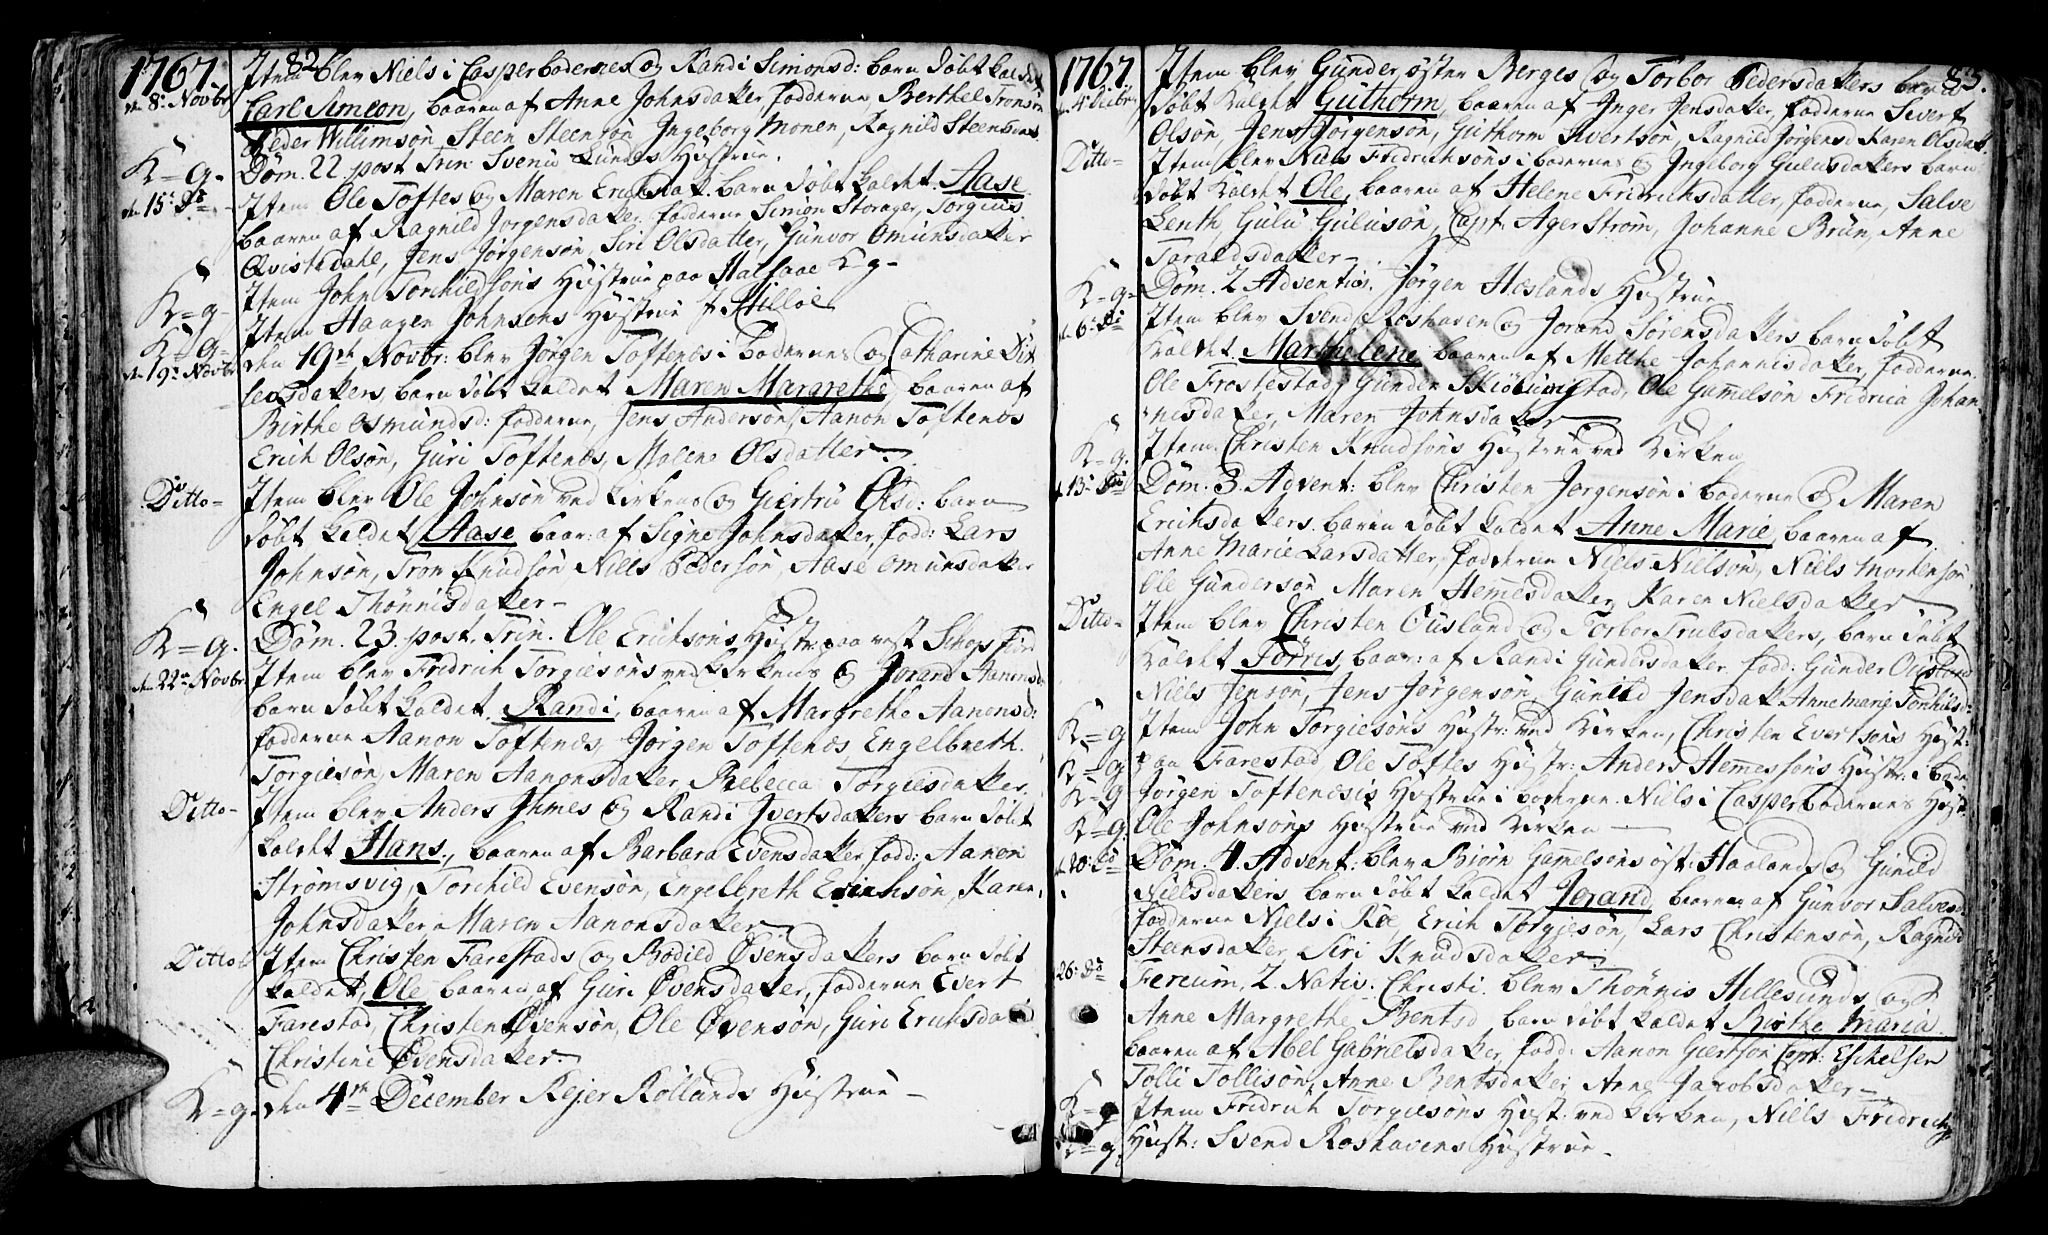 1767. 82.
d. 8: Novbr Item blev Niels i Casperbodernes og Randi Simonsd: barn döbt kaldet
Carl Simeon, baaren af Anne Johnsdatter, fadderne Berthel Tronsön
Peder Willimsön Steen Steensön Ingeborg Monen, Ragnild Steensdat
K=g. Dom. 22. post Trin. Svenu Lundes Hustrue.
d. 15: Do Item Ole Toftes og Maren Erichsdat. barn döbt kaldet Aase
baaren af Ragnild Jörgensdatter, fadderne Simon Storager, Torgius
Qvistedahl, Jens Jörgensön, Siri Olsdatter, Gunvor Omunsdatter
K=g Item John Torchildsöns Hustrue paa Halsaae K=g
K=g Item Haagen Johnsons Hustrue f Hilloe
d. 19: Novbr den 19de Novbr: blev Jörgen Toftenæs i bodernes og Catharine Dit
levsdatters barn döbt kaldet Maren Margrethe, baaren af
Birthe Osmundsd: fadderne, Jens Andersön, Aanon Toftenæs
Erich Olsön, Guri Toftenæs, Malene Olsdatter
Ditto- Item blev Ole Johnsön ved Kirkens og Giertru Olsd: barn
döbt kaldet Aase baar: af Signe Johnsdatter, fadd: Lars
Johnsön, Tron Knudsön Niels Pedersön, Aase Omunsdatter
Engel Thönnisdatter
K=g. Dom. 23. post. Trin. Ole Ericksöns Hustr: paa vest Skogsfior
d. 22de Novbr Item blev Fridrich Torgiesöns ved Kirkens og Jorand Aanonsd:
barn döbt kaldet Randi, baaren af Margrethe Aanonsd:
fadderne Aanon Toftenæs, Jörgen Toftenæs, Engelbreth
Torgiesön, Maren Aanonsdatter, Rebecca Torgiesdatter
Ditto- Item blev Anders Ihmes og Randi Ivertsdatters barn döbt
kaldet Hans, baaren af Barbara Evensdatter, fadd: Aanon
Strömsvig, Torchild Evensön, Engelbreth Erichsön, Karen
Johnsdatter, Maren Aanonsdatter
Ditto Item Christen Farestads og Bodild Övensdatters barn döbt
kaldet Ole, baaren af Guri Övensdatter, fadderne Evert
Farestad, Christen Övensön, Ole Övensön, Guri Erichsdat
Christine Övensdatter
K=g. den 4de December Rejer Röllands Hustrue
1767. 83.
d. 4 Decbr Item blev Gunder öster Berges og Torbor Pedersdatters barn
döbt kaldet Guthorm, baaren af Inger Jensdatter, fadderne Sivert
Olsön, Jens Jörgensön, Guthorm Sivertsön, Ragnild Jörgensd Karen Olsdat
Ditto- Item blev Niels Fridrichsöns i bodernes og Ingeborg Gulusdatters barn
döbt kaldet Ole, baaren af Helene Fridrichsdatter, fadderne, Salve
Lenth, Gulu Gulusön, Capt. Agerström, Johanne Brün, Anne
Taraldsdatter
K=g Dom. 2 Adventis. Jörgen Heslands Hustrue
d. 6: Do Item blev Svend Roshaven og Jorand Sörensdatters barn döbt
kaldet Marthelene baaren af Metthe Johannisdatter, fadderne
Ole Frostestad, Gunder Skiöllingstad, Ole Gamelsön Fridrica Johan
nisdatter, Maren Johnsdatter
K=g. Item Christen Knudsöns Hustrue ved Kirken
d. 13: Do Dom. 3. Advent: blev Christen Jörgensön i boderne og Maren
Erichsdatters barn döbt kaldet Anne Marie, baaren af
Anne Marie Larsdatter, fadderne Niels Nielsön, Niels Mortensön
Ole Gundersön Maren Hemesdatter, Karen Nielsdatter
Ditto- Item blev Christen Ousland og Torbor Trulsdatters, barn döbt
kaldet Törris, baar: af Randi Gundersdatter fadd: Gunder Ousland
Niels Jensön, Jens Jörgensön, Gunild Jensdat Anne Marie Tönnisd:
K=g Item John Torgiesöns Hustr: ved Kirken, Christen Evertsöns Hust:
K=g paa Farestad Ole Toftes Hustr: Anders Hemessöns Hustr: i bode
K=g Jörgen Toftenæsis Hustrue i boderne. Niels i Casperbodernes Hust:
K=g. Ole Johnsöns Hustrue ved Kirken
d. 20: Do Dom. 4. Advent: blev Biörn Gamelsöns öst: Haalands og Gunild
Nielsdatters barn döbt kaldet Jorand, baaren af Gunvor Salvesd:
fadderne Niels i Röe, Erich Torgiesön, Lars Christensön, Ragnild
Steensdatter, Siri Knudsdatter
26: Do Ferium, 2. Nativ: Christi. blev Thönnis Hillesunds og
Anne Margrethe Bentsd barn döbt kaldet Birthe Maria
baaren af Abel Gabrielsdatter, fadd: Aanon Giertsön Capt: Eskelsen
Tolli Tollisön, Anne Bentsdatter, Anne Jacobsdatter
K=g Item Fridrich Torgiesöns Hust. ved Kirken, Niels Fridrichs
K=g Hust: Svend Roshavens Hustrue